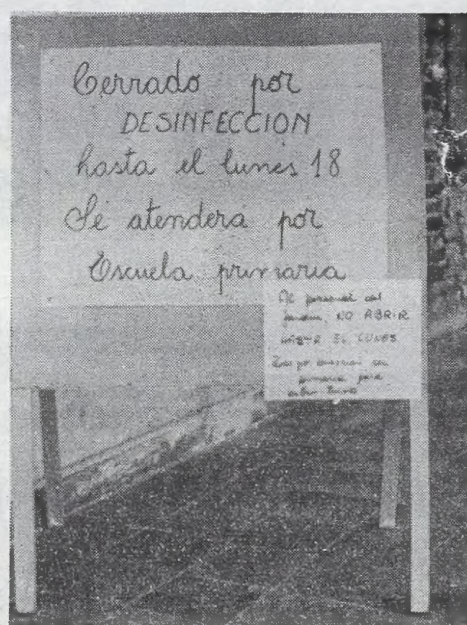 Cerrado por
DESINFECCION
hasta el lunes 18
Se atendera por
Escuela primaria
Al personal del
NO ABRIR
HASTA EL LUNES
primaria para